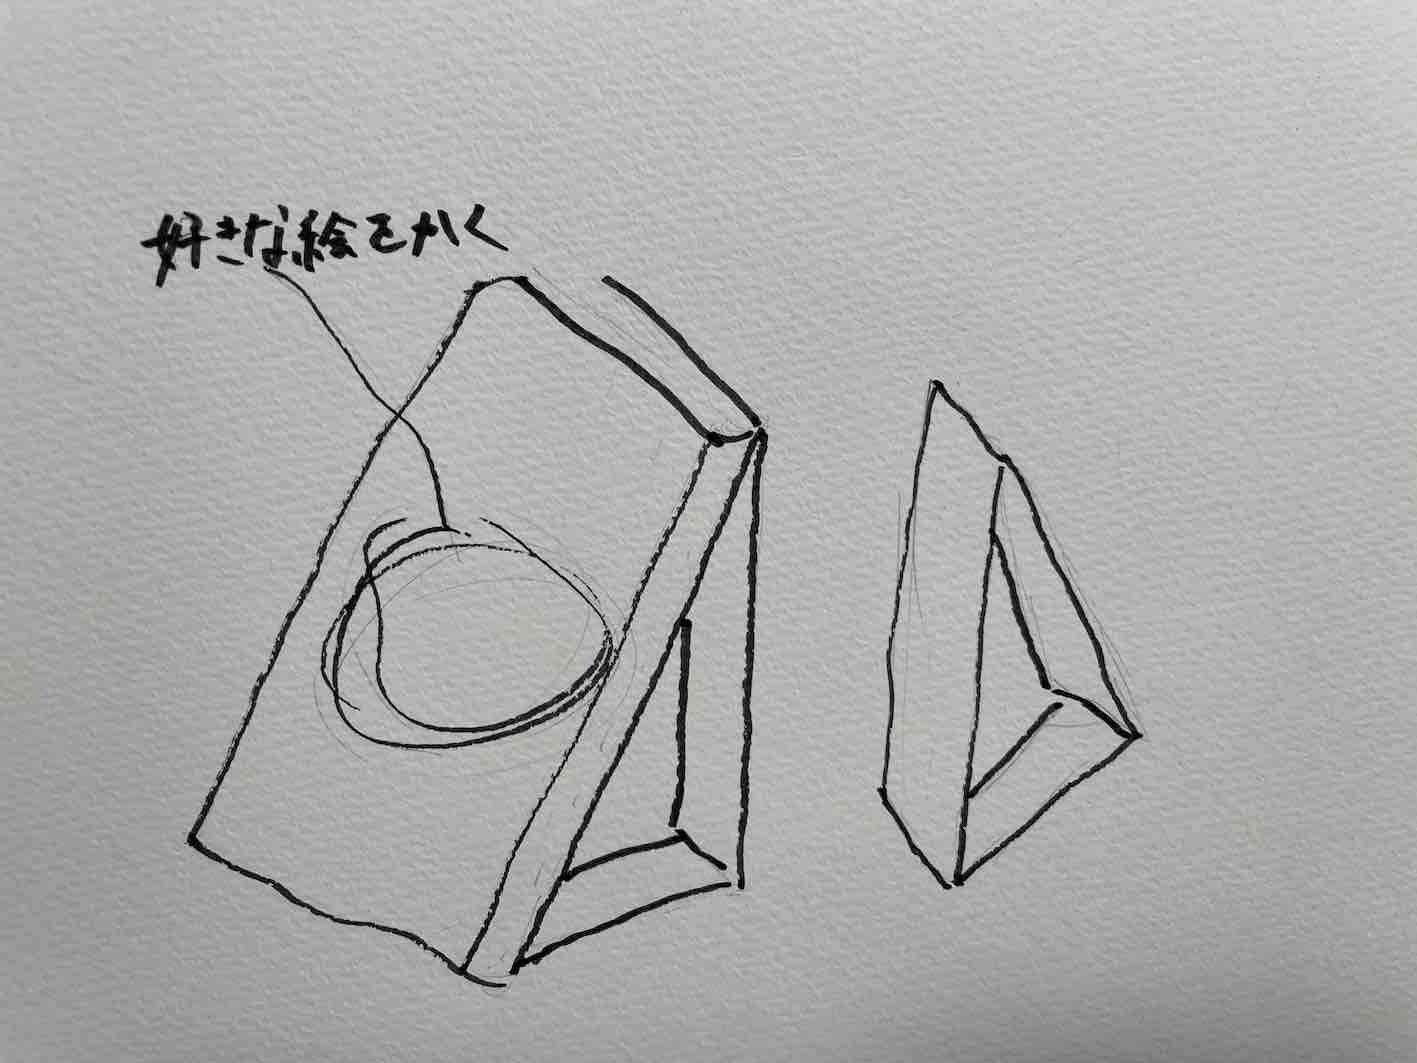 好きな絵をかく